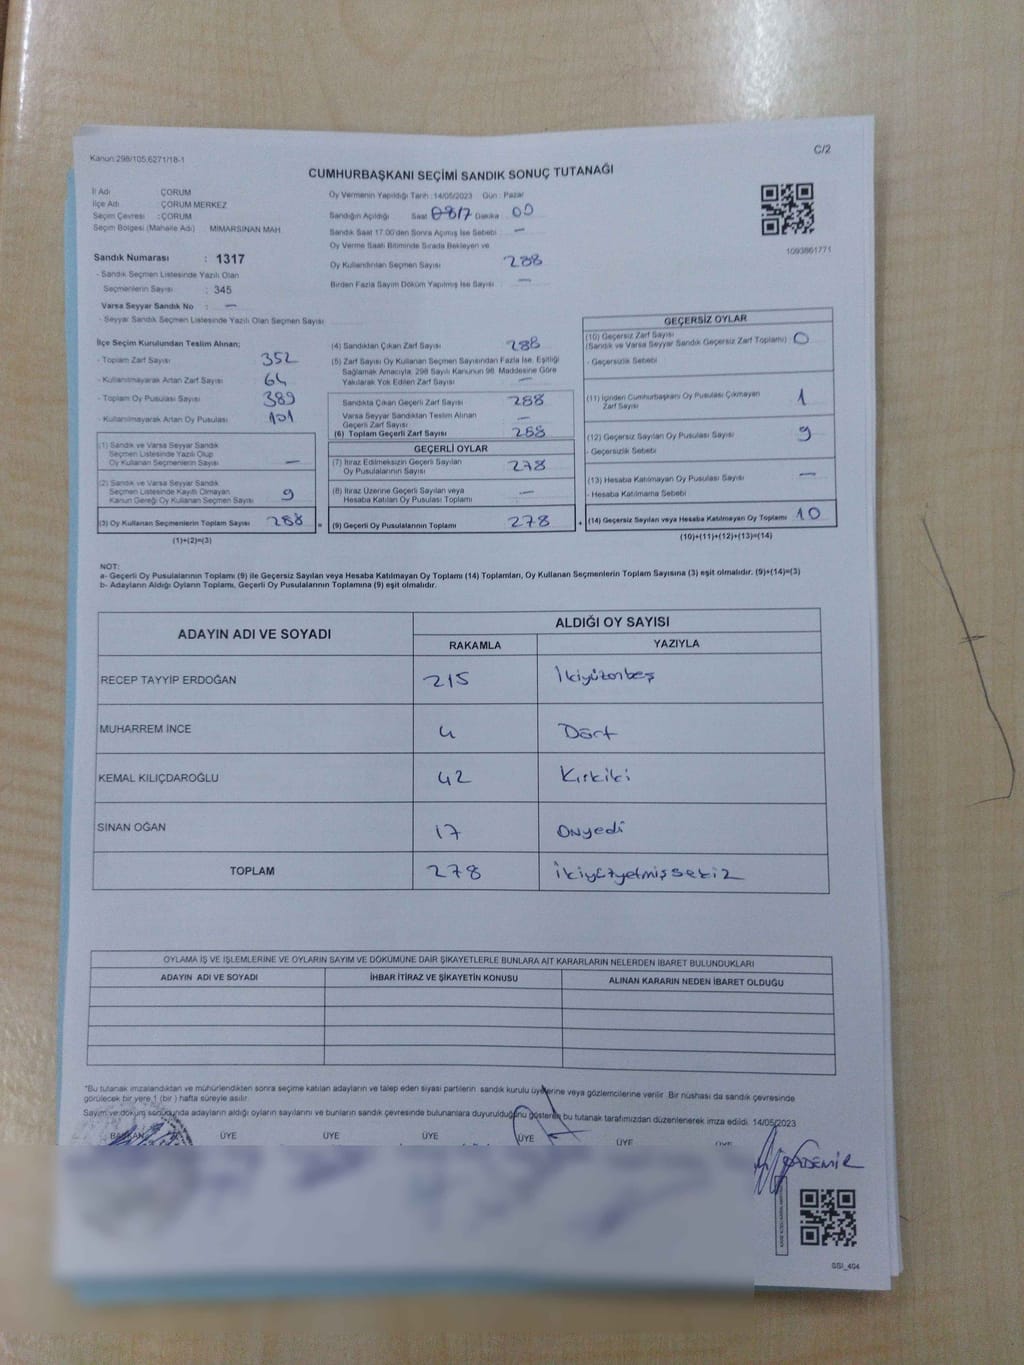 Kanun:298/105,6271/18-1
C/2
CUMHURBAŞKANI SEÇİMİ SANDIK SONUÇ TUTANAĞI
İl Adı : ÇORUM
İlçe Adı : ÇORUM MERKEZ
Seçim Çevresi : ÇORUM
Seçim Bölgesi (Mahalle Adı) MİMARSİNAN MAH.
Sandık Numarası : 1317
- Sandık Seçmen Listesinde Yazılı Olan
Seçmenlerin Sayısı : 345
Varsa Seyyar Sandık No : —
- Seyyar Sandık Seçmen Listesinde Yazılı Olan Seçmen Sayısı
Oy Vermenin Yapıldığı Tarih : 14/05/2023 Gün : Pazar
Sandığın Açıldığı Saat 17 Dakika 00
Sandık Saat 17.00'den Sonra Açılmış İse Sebebi : —
Oy Verme Saati Bitiminde Sırada Bekleyen ve
Oy Kullandırılan Seçmen Sayısı 288
Birden Fazla Sayım Döküm Yapılmış İse Sayısı : —
1093861771
İlçe Seçim Kurulundan Teslim Alınan;
- Toplam Zarf Sayısı 352
- Kullanılmayarak Artan Zarf Sayısı 64
- Toplam Oy Pusulası Sayısı 389
- Kullanılmayarak Artan Oy Pusulası 101
(1) Sandık ve Varsa Seyyar Sandık
Seçmen Listesinde Yazılı Olup
Oy Kullanan Seçmenlerin Sayısı —
(2) Sandık ve Varsa Seyyar Sandık
Seçmen Listesinde Kayıtlı Olmayan
Kanun Gereği Oy Kullanan Seçmen Sayısı 9
(3) Oy Kullanan Seçmenlerin Toplam Sayısı 288 =
(1)+(2)=(3)
(4) Sandıktan Çıkan Zarf Sayısı 288
(5) Zarf Sayısı Oy Kullanan Seçmen Sayısından Fazla İse, Eşitliği
Sağlamak Amacıyla, 298 Sayılı Kanunun 98. Maddesine Göre
Yakılarak Yok Edilen Zarf Sayısı —
Sandıkta Çıkan Geçerli Zarf Sayısı 288
Varsa Seyyar Sandıktan Teslim Alınan
Geçerli Zarf Sayısı —
(6) Toplam Geçerli Zarf Sayısı 288
GEÇERLİ OYLAR
(7) İtiraz Edilmeksizin Geçerli Sayılan
Oy Pusulalarının Sayısı 278
(8) İtiraz Üzerine Geçerli Sayılan veya
Hesaba Katılan Oy Pusulası Toplamı —
(9) Geçerli Oy Pusulalarının Toplamı 278 +
GEÇERSİZ OYLAR
(10) Geçersiz Zarf Sayısı
(Sandık ve Varsa Seyyar Sandık Geçersiz Zarf Toplamı) 0
- Geçersizlik Sebebi
(11) İçinden Cumhurbaşkanı Oy Pusulası Çıkmayan
Zarf Sayısı 1
(12) Geçersiz Sayılan Oy Pusulası Sayısı 9
- Geçersizlik Sebebi
(13) Hesaba Katılmayan Oy Pusulası Sayısı —
- Hesaba Katılmama Sebebi
(14) Geçersiz Sayılan veya Hesaba Katılmayan Oy Toplamı 10
(10)+(11)+(12)+(13)=(14)
NOT:
a- Geçerli Oy Pusulalarının Toplamı (9) ile Geçersiz Sayılan veya Hesaba Katılmayan Oy Toplamı (14) Toplamları, Oy Kullanan Seçmenlerin Toplam Sayısına (3) eşit olmalıdır. (9)+(14)=(3)
b- Adayların Aldığı Oyların Toplamı, Geçerli Oy Pusulalarının Toplamına (9) eşit olmalıdır.
ADAYIN ADI VE SOYADI
ALDIĞI OY SAYISI
RAKAMLA YAZIYLA
RECEP TAYYİP ERDOĞAN 215 İkiyüzonbeş
MUHARREM İNCE 4 Dört
KEMAL KILIÇDAROĞLU 42 Kırkiki
SİNAN OĞAN 17 Onyedi
TOPLAM 278 ikiyüzyetmişsekiz
OYLAMA İŞ VE İŞLEMLERİNE VE OYLARIN SAYIM VE DÖKÜMÜNE DAİR ŞİKAYETLERLE BUNLARA AİT KARARLARIN NELERDEN İBARET BULUNDUKLARI
ADAYIN ADI VE SOYADI İHBAR İTİRAZ VE ŞİKAYETİN KONUSU ALINAN KARARIN NEDEN İBARET OLDUĞU
*Bu tutanak imzalandıktan ve mühürlendikten sonra seçime katılan adayların ve talep eden siyasi partilerin sandık kurulu üyelerine veya gözlemcilerine verilir. Bir nüshası da sandık çevresinde
görülecek bir yere 1 (bir ) hafta süreyle asılır.
Sayım ve döküm sonucunda adayların aldığı oyların sayılarını ve bunların sandık çevresinde bulunanlara duyurulduğunu gösteren bu tutanak tarafımızdan düzenlenerek imza edildi. 14/05/2023
BAŞKAN ÜYE ÜYE ÜYE ÜYE ÜYE ÜYE
SSI_404